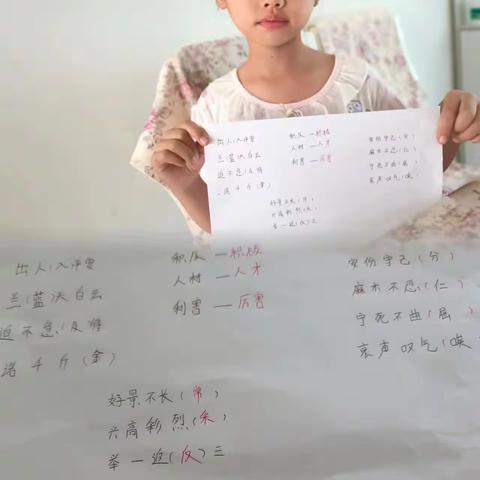 出人(入)冲要
兰(蓝)天白云
迫不怠(及)待
诺千斤(金)
积及 — 积极
人材 — 人才
利害 — 厉害
安份守己(分)
麻木不忍(仁)
宁死不曲(屈)
哀声叹气(唉)
好景不长(常)
兴高彩烈(采)
举一返(反)三